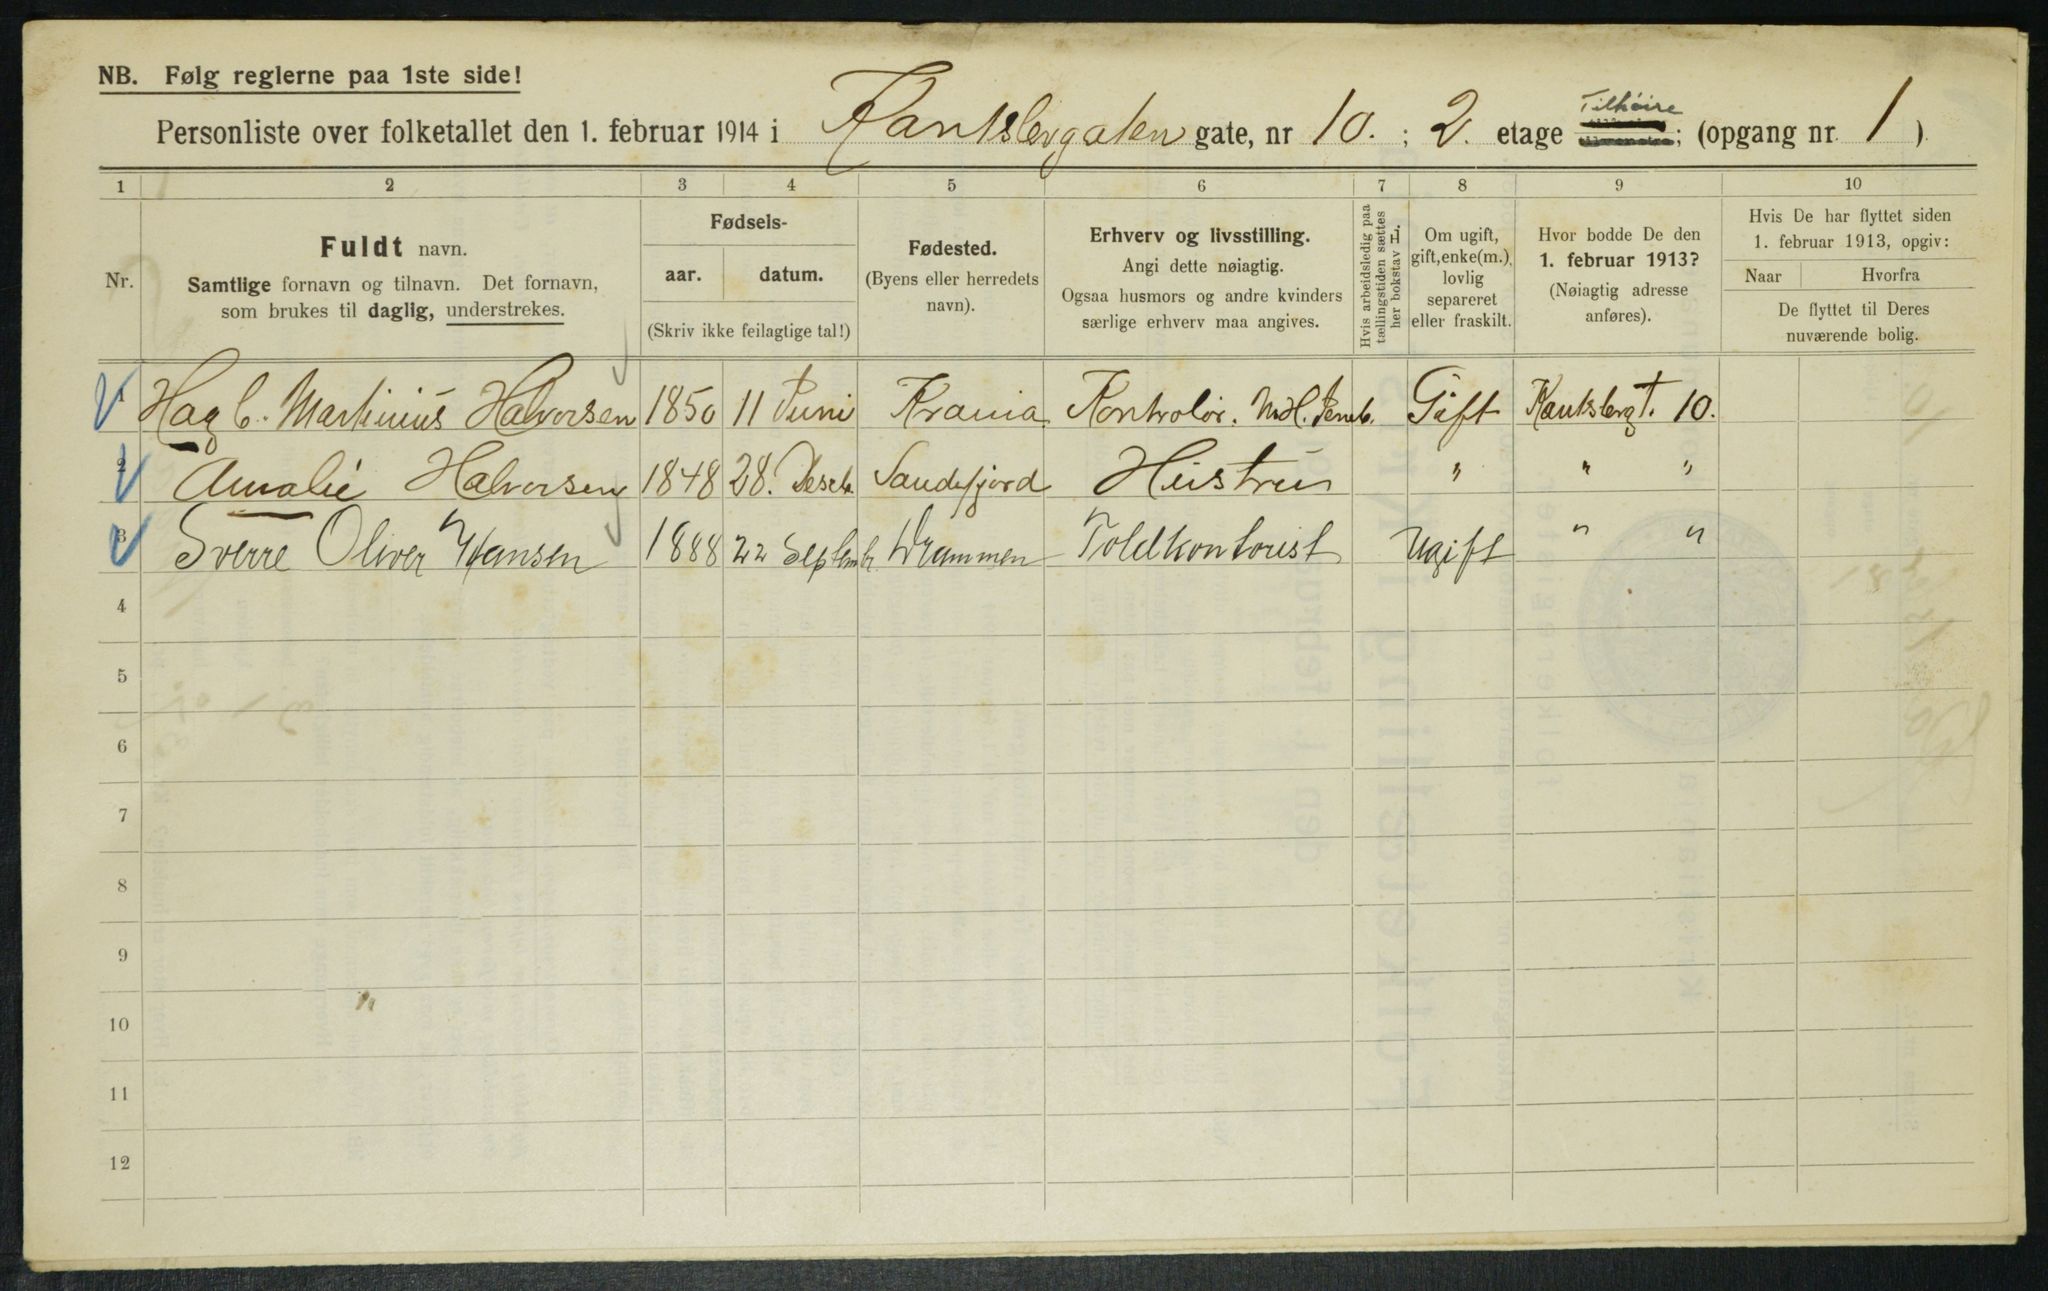 NB. Følg reglerne paa 1ste side!
Tilhöire
Personliste over folketallet den 1. februar 1914 i Kantslergaten gate, nr 10. ; 2. etage ; (opgang nr. 1 ).
1 2 3 4 5 6 7 8 9 10
Nr.
Fuldt navn.
Samtlige fornavn og tilnavn. Det fornavn,
som brukes til daglig, understrekes.
Fødsels-
aar. datum.
(Skriv ikke feilagtige tal!)
Fødested.
(Byens eller herredets
navn).
Erhverv og livsstilling.
Angi dette nøiagtig.
Ogsaa husmors og andre kvinders
særlige erhverv maa angives.
Hvis arbeidsledig paa
tællingstiden sættes
her bokstav L.
Om ugift,
gift, enke(m.),
lovlig
separeret
eller fraskilt.
Hvor bodde De den
1. februar 1913?
(Nøiagtig adresse
anføres).
Hvis De har flyttet siden
1. februar 1913, opgiv:
Naar Hvorfra
De flyttet til Deres
nuværende bolig.
1 Hag C. Martinius Halvorsen 1850 11 Juni Krania Kontrolör. Gift Kantslergt. 10.
2 Amalie Halvorsen 1848 28. Deseb. Sandefjord Hustru " " "
3 Sverre Oliver Hansen 1888 22 Septembr Drammen Toldkontorist Ugift " "
4
5
6
7
8
9
10
11
12